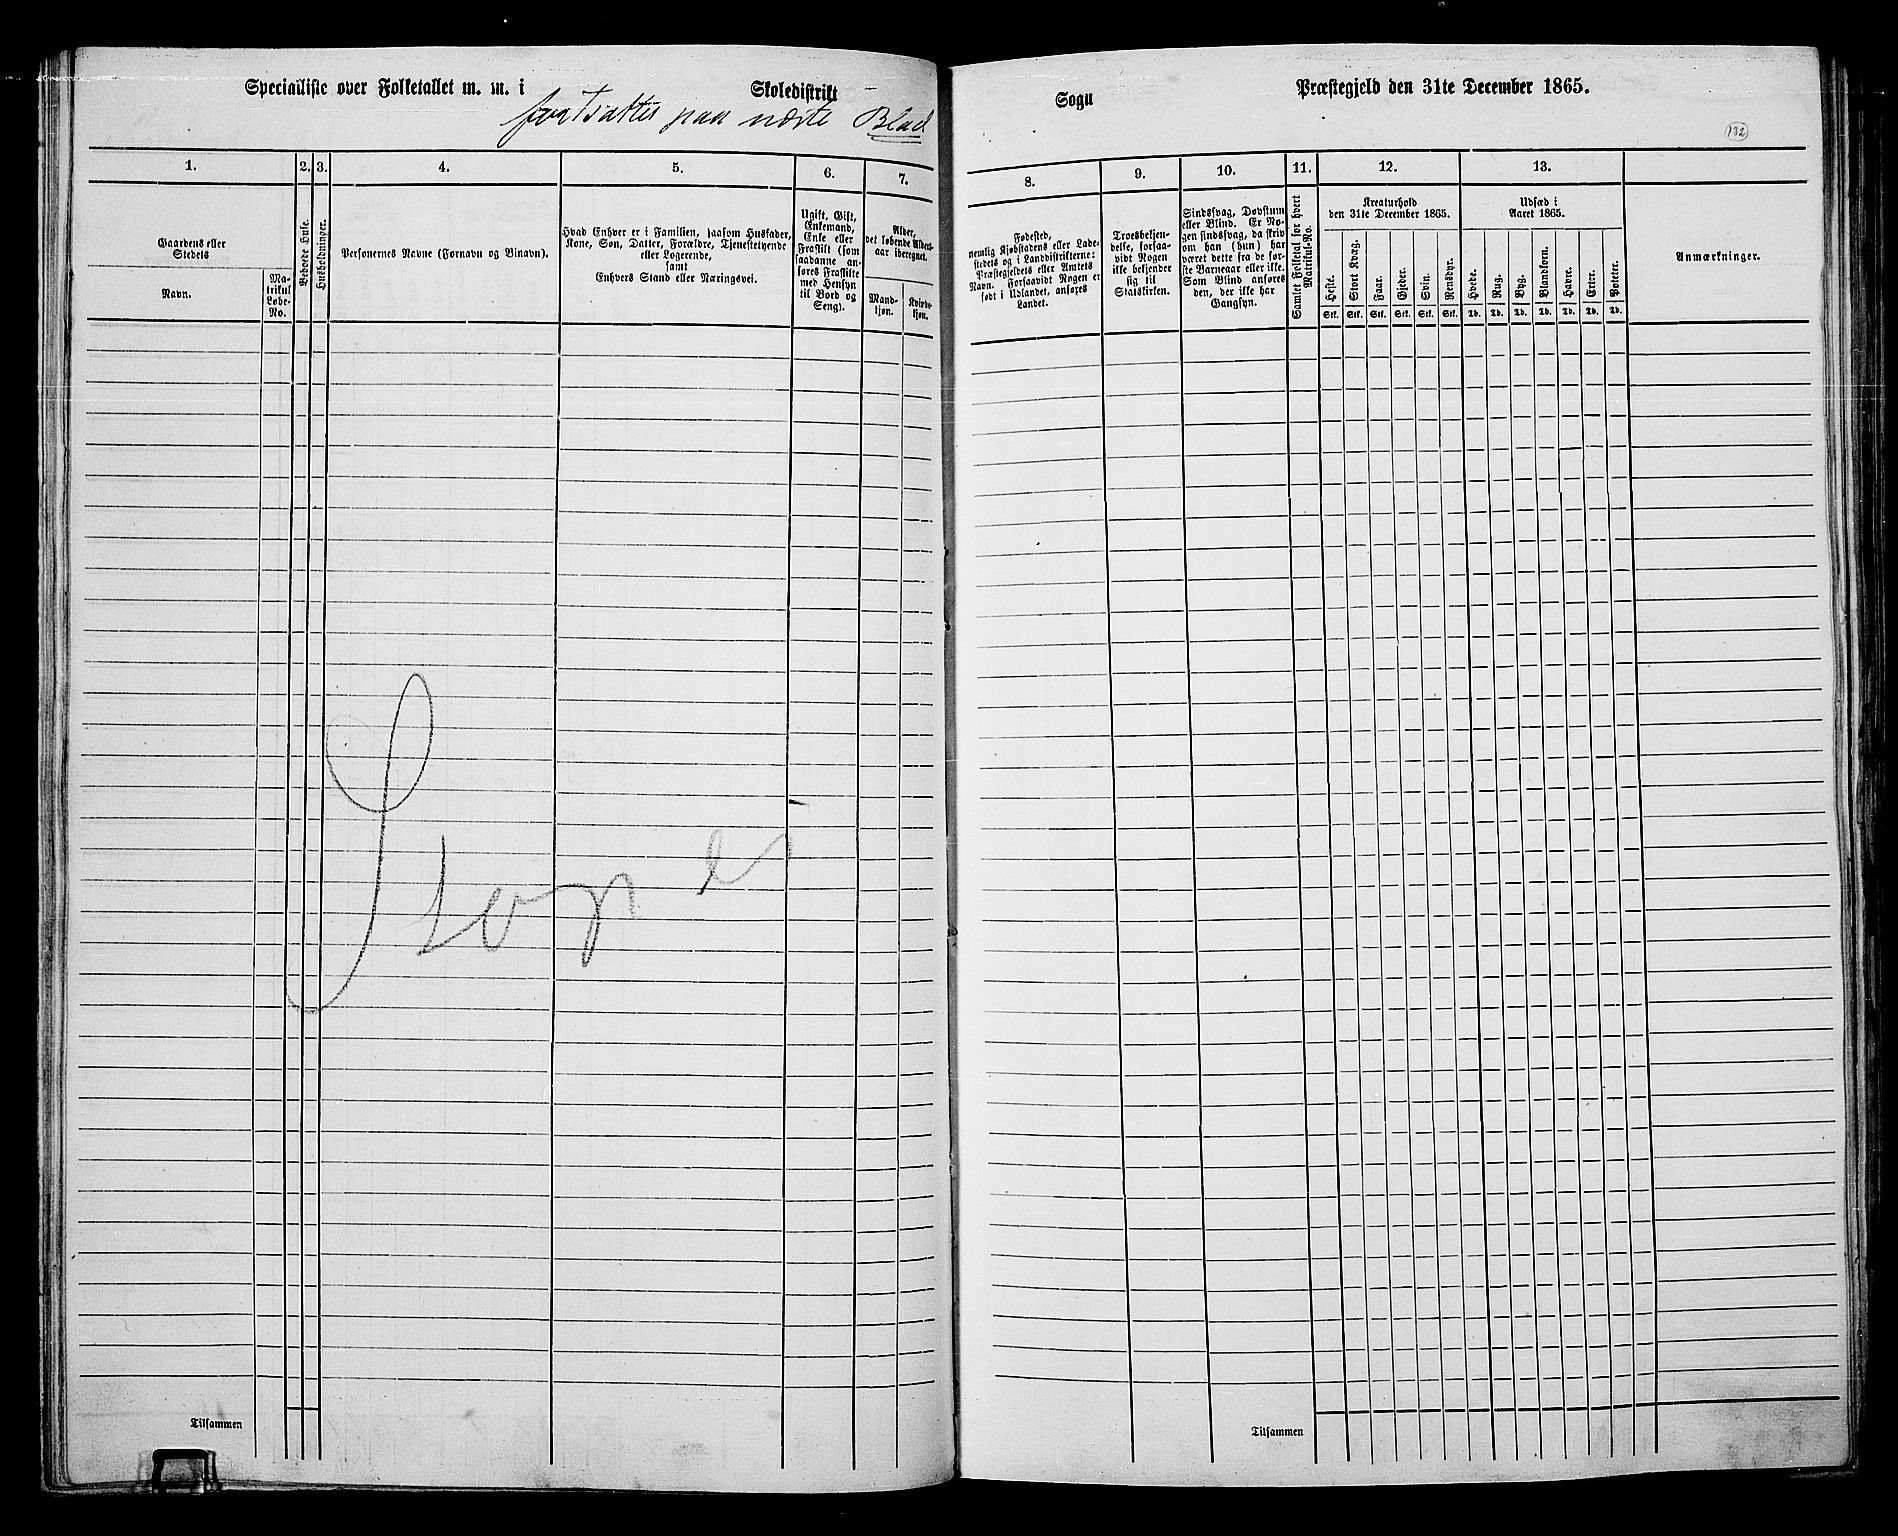 Specialliste over Folketallet m. m. i Skoledistrikt
fortsattes paa næste Blad
1.
2.
3.
4.
5.
6.
7.
Gaardens eller
Stedets
Navn.
Ma-
trikul
Løbe-
No.
Beboede Huse.
Husholdninger.
Personernes Navne (Fornavn og Binavn).
Hvad Enhver er i Familien, saasom Husfader,
Kone, Søn, Datter, Forældre, Tjenestetyende
eller Logerende,
samt
Enhvers Stand eller Næringsvei.
Ugift, Gift,
Enkemand,
Enke eller
Fraskilt (som
saadanne an-
føres Fraskilte
med Hensyn
til Bord og
Seng).
Alder,
det løbende Alders-
aar iberegnet.
Mand-
kjøn.
Kvinde-
kjøn.
Tilsammen
Sogn
Præstegjeld den 31te December 1865.
132
8.
9.
10.
11.
12.
13.
Fødested,
nemlig Kjøbstadens eller Lade-
stedets og i Landdistrikterne:
Præstegjeldets eller Amtets
Navn. Forsaavidt Nogen er
født i Udlandet, anføres
Landet.
Troesbekjen-
delse, forsaa-
vidt Nogen
ikke bekjender
sig til
Statskirken.
Sindssvag, Døvstum
eller Blind. Er No-
gen sindssvag, da skriv
om han (hun) har
været dette fra de før-
ste Barneaar eller ikke.
Som Blind anføres
den, der ikke har
Gangsyn.
Samlet Folketal for hvert
Matrikul-No.
Kreaturhold
den 31te December 1865.
Heste.
Stort Kvæg.
Faar.
Gjeder.
Svin.
Rensdyr.
Stk. Stk. Stk. Stk. Stk. Stk.
Udsæd i
Aaret 1865.
Hvede.
Rug.
Byg.
Blandkorn.
Havre.
Erter.
Poteter.
Td. Td. Td. Td. Td. Td. Td.
Anmærkninger.
Tilsammen